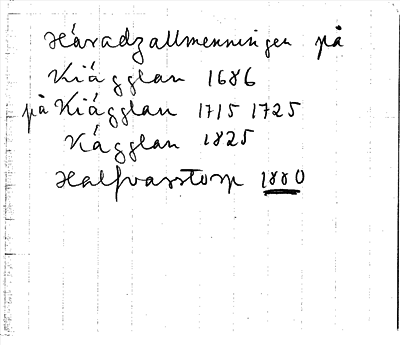 Häradzallmenningen på
Kiägglan 1686
på Kiägglan 1715 1725
Kägglan 1825
Halfvarstorp 1880